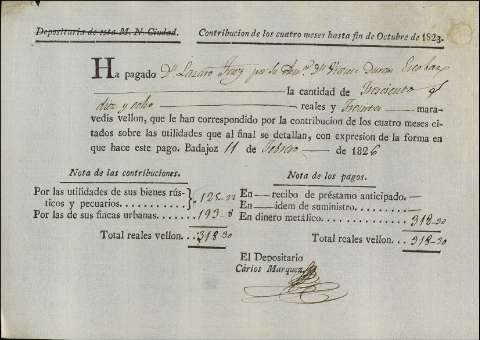 Depositaría de esta M. N. Ciudad. Contribucion de los cuatro meses hasta fin de Octubre de 1823.
Ha pagado Dn. Lazaro por la Dn. Duran
la cantidad de Trescientos
diez y ocho reales y Treinta mara-
vedis vellon, que le han correspondido por la contribucion de los cuatro meses ci-
tados sobre las utilidades que al final se detallan, con expresion de la forma en
que hace este pago. Badajoz 11 de Febrero de 1826
Nota de las contribuciones.
Por las utilidades de sus bienes rús-
ticos y pecuarios. } 125-22
Por las de sus fincas urbanas. 193-8
Total reales vellon. 318-30
Nota de los pagos.
En recibo de préstamo anticipado.
En idem de suministro.
En dinero metálico. 318-30
Total reales vellon. 318-30
El Depositario
Cárlos Marquez